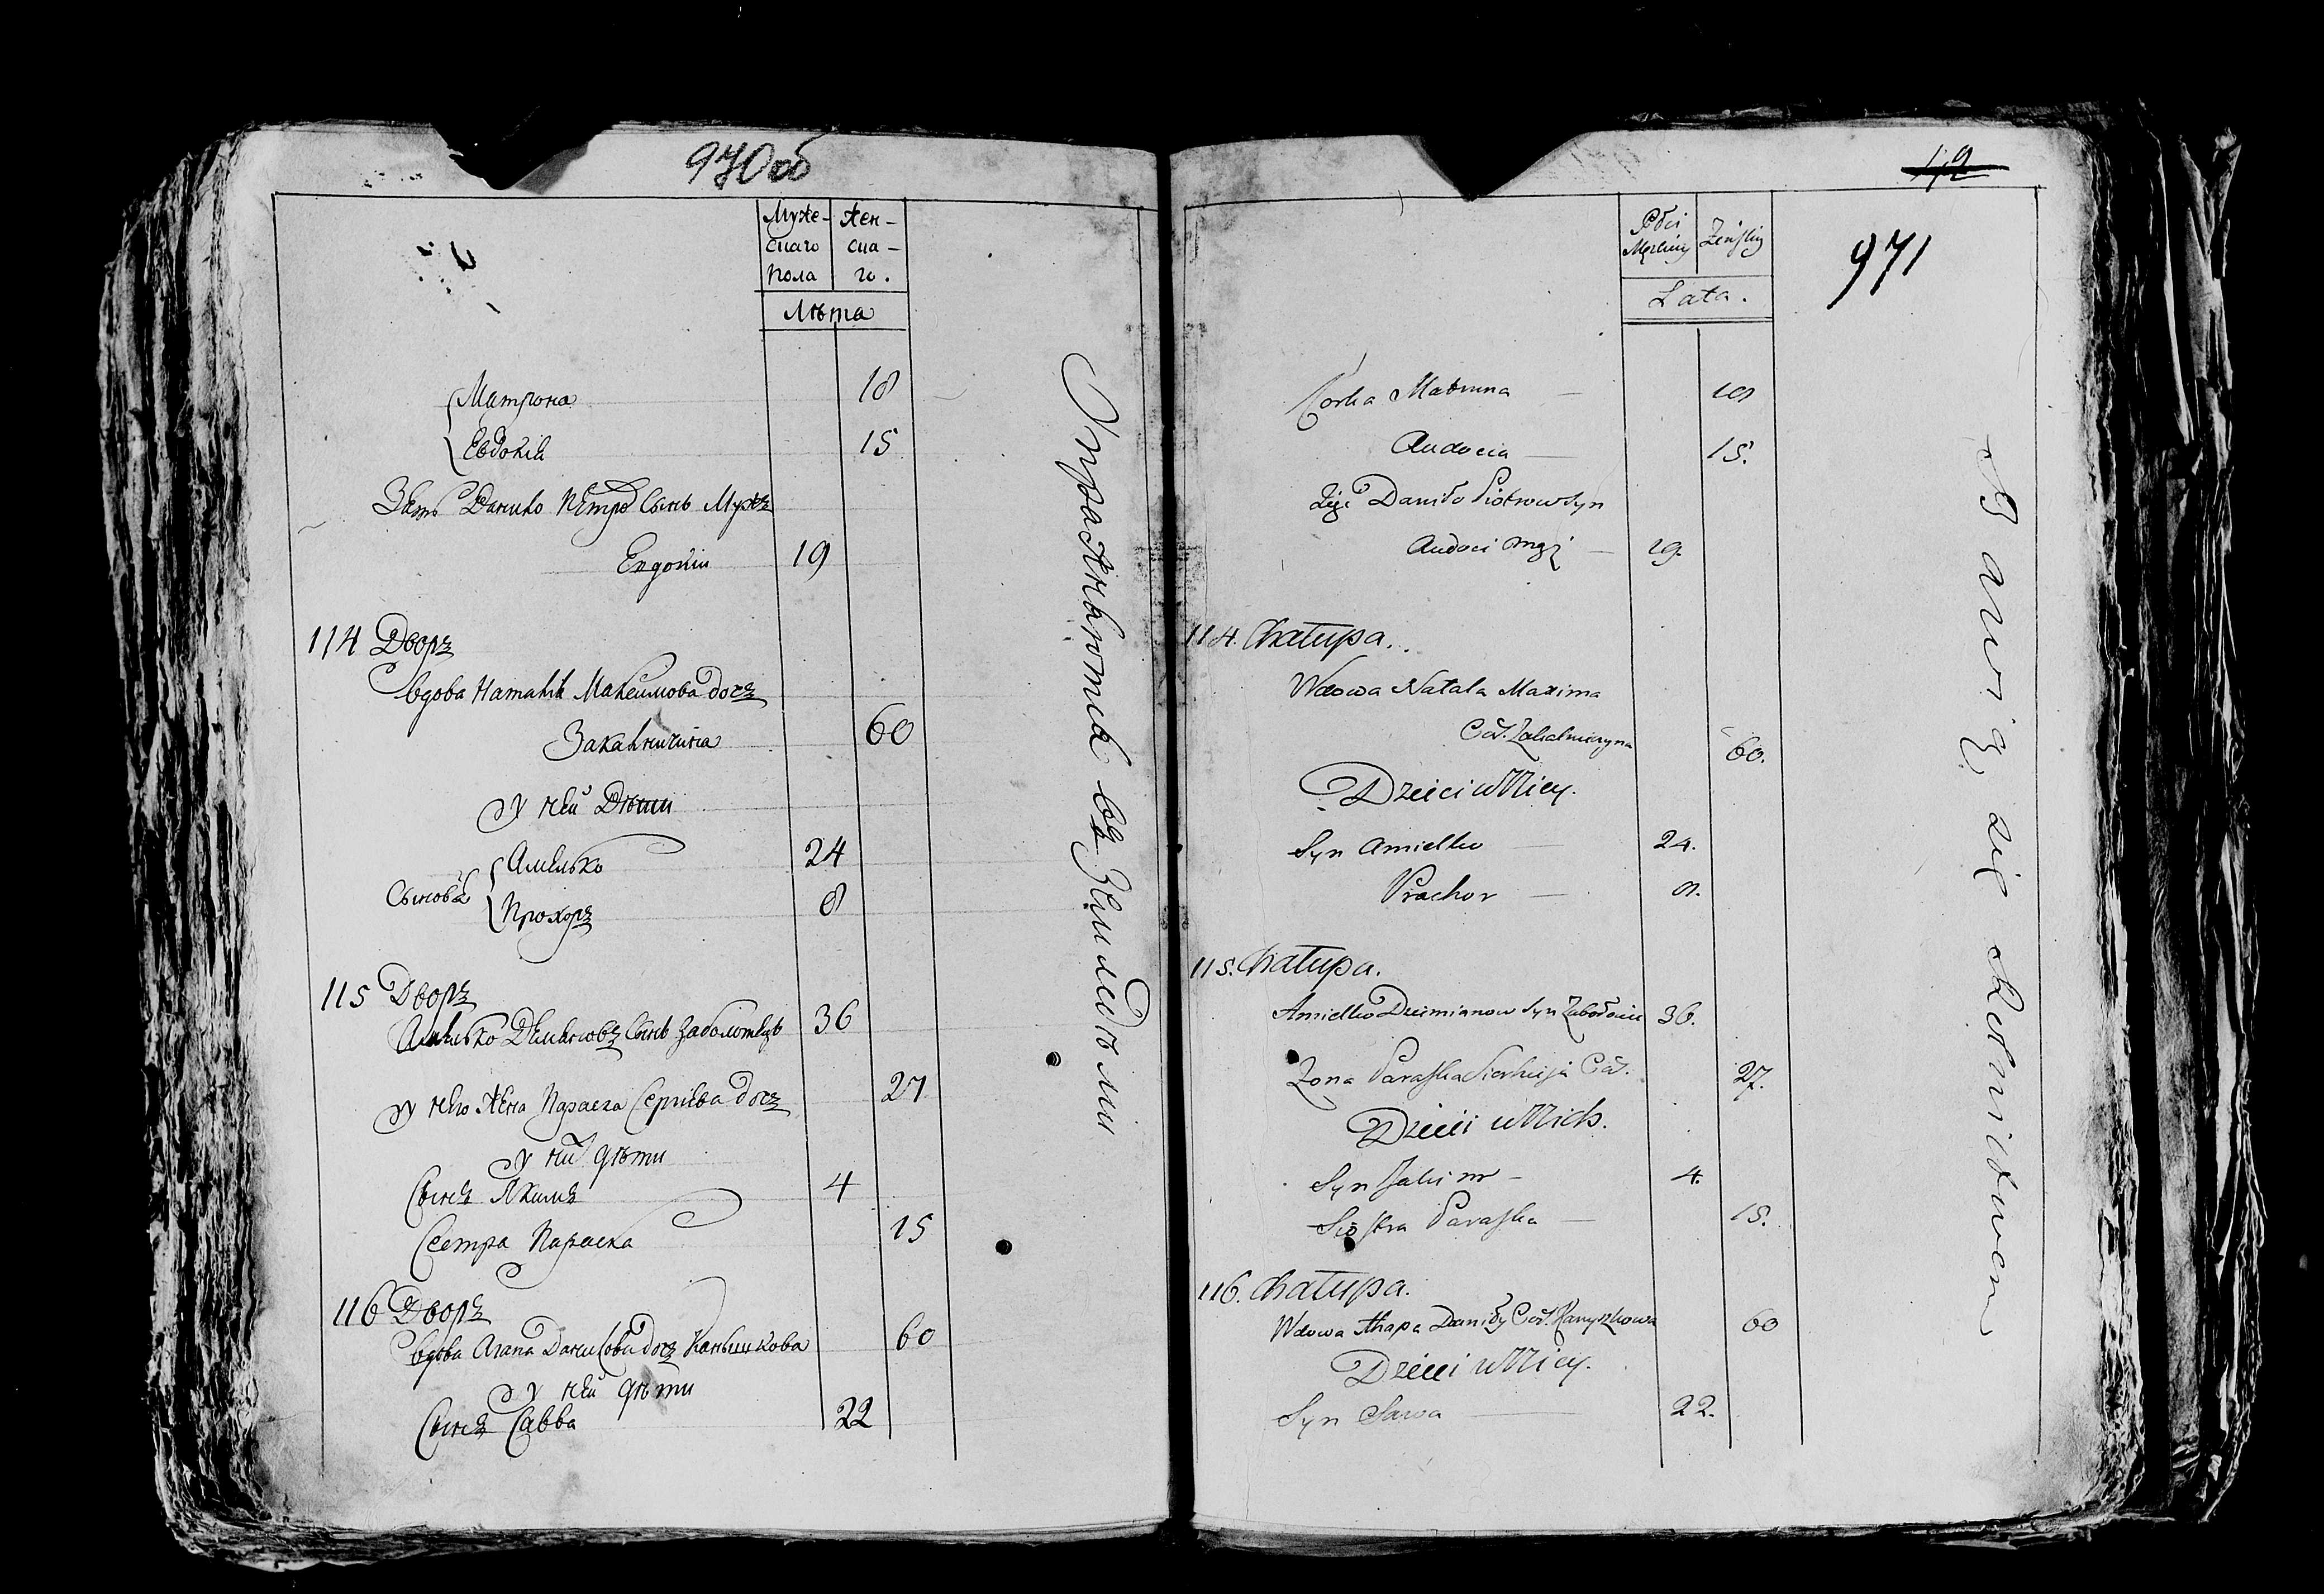 970об
Муже-
скаго
пола
Жен-
ска-
го.
Лѣта
Матрона 18
Евдокія 15
Зять Данило Петровъ Сынъ Мужъ
Евдокіи 19
114 Дворъ
Вдова Наталія Максимова дочь
60
У ней Дѣти
Сыновья
Амелько 24
Прохоръ 8
115 Дворъ
Амелько Демяновъ Сынъ Заболотецъ 36
У него Жена Параска Сергѣева дочь 27
У ни дѣти
Сынъ Якимъ 4
Сестра Параска 15
116 Дворъ
Вдова Агапа Данилова дочь Канышкова 60
У ней дѣти
Сынъ Савва 22
Упражняются въ Земледѣліи
112
971
Płci
Męskiey
Żeńskiy
Lata.
Corka Matruna 18
Audocia 15.
Zięć Daniło Piotrow Syn
Audoci mąż 19.
114. Chałupa.
Wdowa Natala Maxima
Cór. 60.
Dzieci u Niey.
Syn Amielko 24.
Prachor 8.
115. Chałupa.
Amielko Dziemianow Syn Zabołociec 36.
Zona Paraska Cór. 27.
Dzieci u Nich.
Syn Jakim 4.
Siostra Paraska 15.
116. Chałupa.
Wdowa Ahapa Daniły Cór. Kanyszkowa 60
Dzieci u Niey.
Syn Sawa 22.
Bawią się Rolnictwem